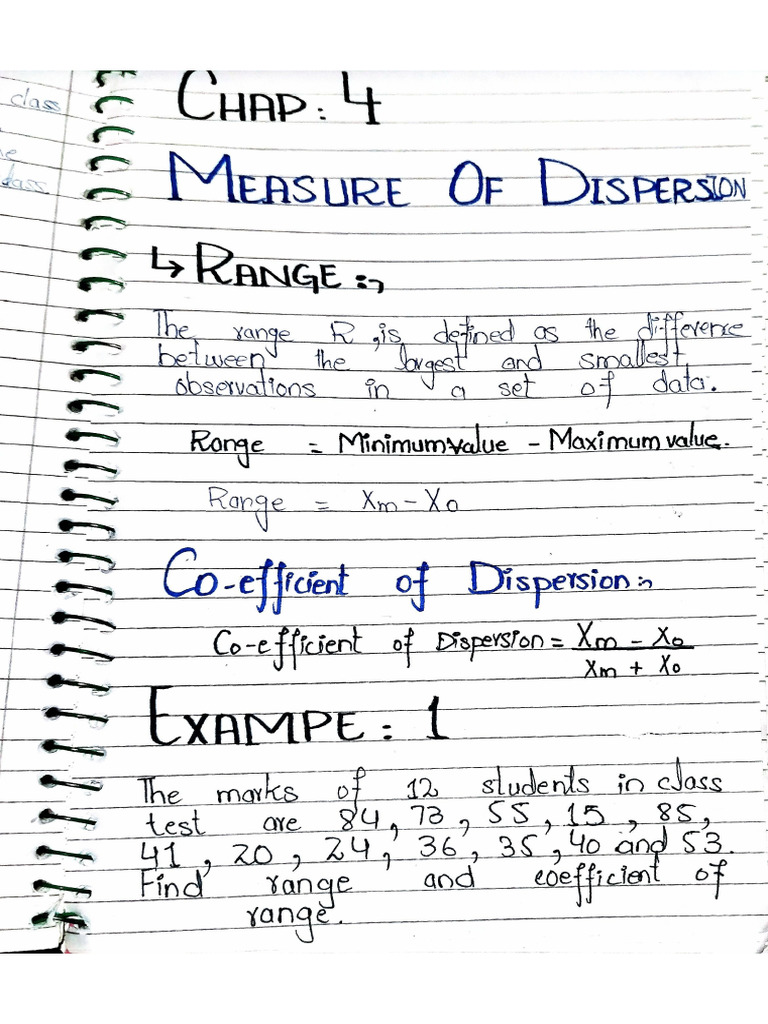 class
class
CHAP: 4
MEASURE OF DISPERSION
↳ RANGE:-,
The range R, is defined as the difference
between the largest and smallest
observations in a set of data.
Range = Minimum value - Maximum value.
Range = Xm - Xo
Co-efficient of Dispersion:-,
Co-efficient of Dispersion = Xm - Xo
Xm + Xo
EXAMPE: 1
The marks of 12 students in class
test are 84, 73, 55, 15, 85,
41, 20, 24, 36, 35, 40 and 53.
Find range and coefficient of
range.